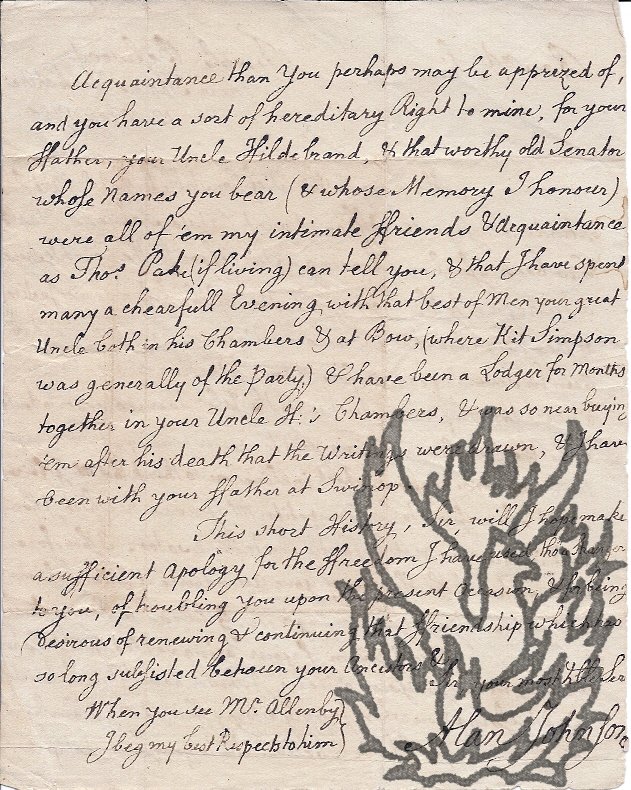 Acquaintance than you perhaps may be apprized of,
and you have a sort of hereditary Right to mine, for your
ffather, your Uncle Hildebrand, & that worthy old Senator
whose Names you bear (& whose Memory I honour)
were all of 'em my intimate ffriends & Acquaintance
as Thos. Pak (if living) can tell you, & that I have spent
many a chearfull Evening with that best of Men your great
Uncle both in his Chambers & at Bow, (where Kit Simpson
was generally of the Party,) & have been a Lodger for Months
together in your Uncle H:'s Chambers, & was so near buying
'em after his death that the Writings were drawn, & I have
been with your ffather at Swinop.
This short History, Sir will I hope make
a sufficient Apology for the ffreedom I have used tho' a stranger
to you, of troubling you upon the present Occasion, & for being
Desirous of renewing & continuing that ffriendship which has
so long subsisted between your Ancestors & Sir your most
When you see Mr. Allenby
I beg my best Respects to him
Alan Johnson